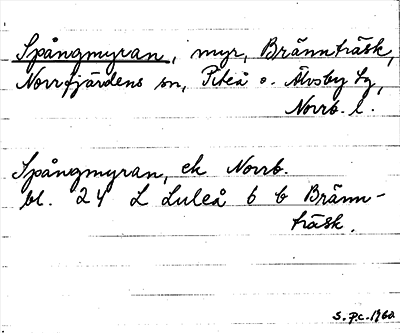 Spångmyran, myr, Brännträsk,
Norrfjärdens sn, Piteå o. Älvsby tg,
Norrb. l.
Spångmyran, ek Norrb.
bl. 24 L Luleå 6 b Bränn-
träsk.
S.p.c. 1960